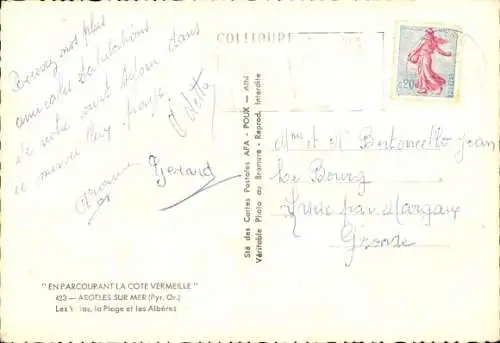 Recevez nos plus
amicales salutations
de notre court séjour dans
ce merveilleux pays
Odette
Gérard
COLLIOURE
0,20
POSTES
Mme et Mr Bertoncello Jean
Le Bourg
par Margaux
Gironde
Sté des Cartes Postales APA - POUX - Albi
Véritable Photo au Bromure - Reprod. Interdite
" EN PARCOURANT LA COTE VERMEILLE "
423 — ARGELES SUR MER (Pyr. Or.)
Les Villas, la Plage et les Albères